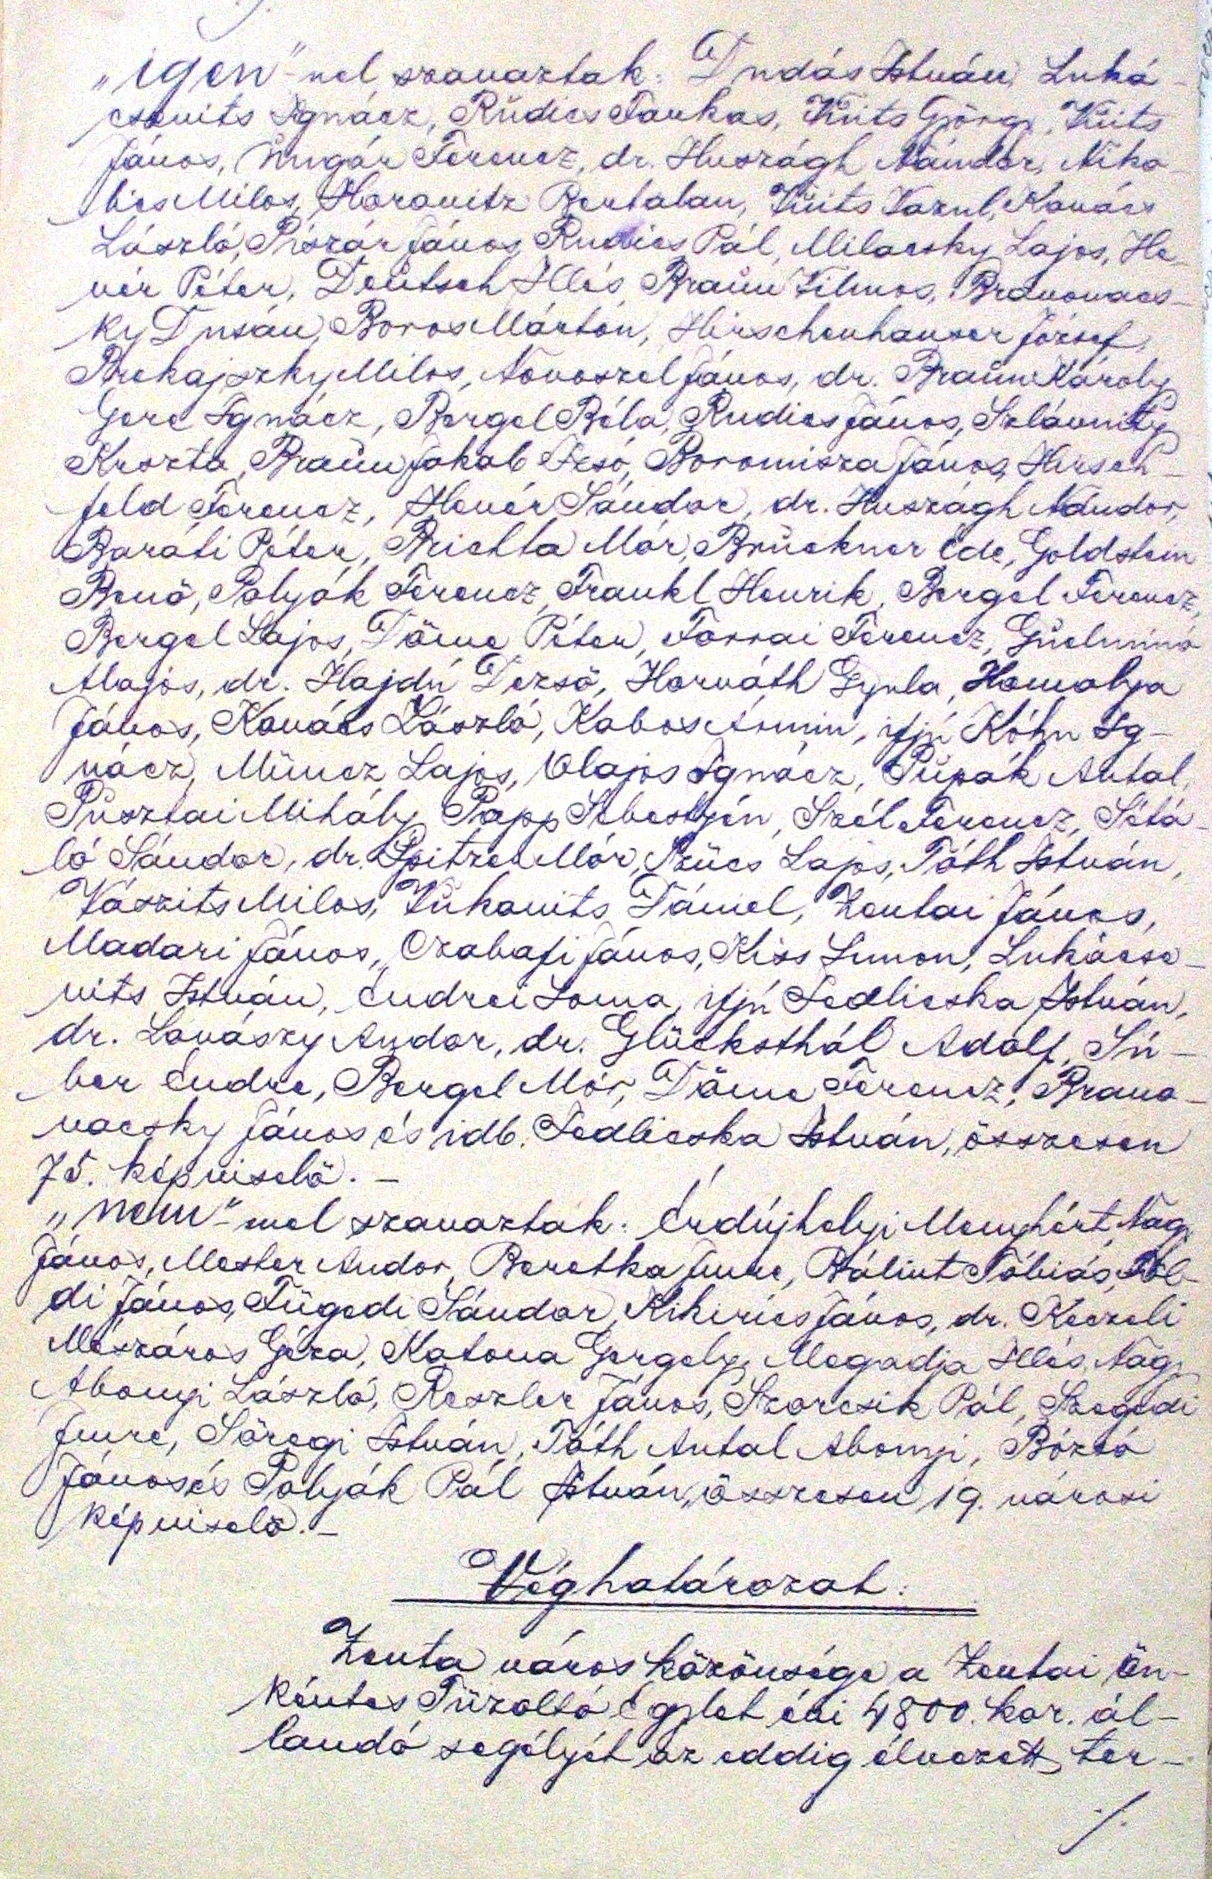 „igen"-nel szavaztak: Dudás István, Luká-
csevits Ignácz, Rudics Farkas, Vuits György, Vuits
János, Ungár Ferencz, dr. Huszágh Nándor, Niko-
lics Milos, Horovitz Bertalan, Vuits Vazul, Kovács
László, Piszár János, Rudics Pál, Milacsky Lajos, He-
vér Péter, Deutsch Illés, Braun Vilmos, Branovacs-
ky Dusán, Boros Márton, Hirschenhauser József,
Prekajszky Milos, Novoszel János, dr. Braun Károly
Gere Ignácz, Bergel Béla, Rudics János, Szlávnity
Kroszta, Braun Jakab Izsó, Boromisza János, Hirsch-
feld Ferencz, Hevér Sándor, dr. Huszágh Nándor,
Baráti Péter, Brichta Mór, Brückner Ede, Goldstein
Benő, Polyák Ferencz, Frankl Henrik, Bergel Ferencz,
Bergel Lajos, Döme Péter, Forrai Ferencz, Guelmino
Alajos, dr. Hajdú Dezső, Horváth Gyula, Homolya
János, Kovács László, Kabos Ármin, ifjú Kóhn Ig-
nácz, Müncz Lajos, Olajos Ignácz, Pupák Antal,
Pusztai Mihály, Papp Sebestyén, Szél Ferencz, Sétá-
ló Sándor, dr. Spitzer Mór, Szücs Lajos, Tóth István,
Vászits Milos, Vukovits Dániel, Zentai János,
Madari János, Czabafi János, Kiss Simon, Lukácse-
vits István, Endrei Soma, ifjú Fedlicska István,
dr. Lovászy Andor, dr. Glücksthál Adolf, Sü-
ber Endre, Bergel Mór, Döme Ferencz, Brano-
vacsky János és idb. Fedlicska István, összesen
75. képviselő. –
„nem"-mel szavaztak: Érdújhelyi Menyhért, Nagy
János, Mester Andor, Beretka Imre, Bálint Tóbiás, Föl-
di János, Fügedi Sándor, Kiherics János, dr. Keczeli
Mészáros Géza, Katona Gergely, Mogadja Illés, Nagy
Abonyi László, Reszler János, Szorcsik Pál, Szegedi
Imre, Söregi István, Tóth Antal Abonyi, Bózsó
János és Polyák Pál István, összesen 19. városi
képviselő. –
Véghatározat:
Zenta város közönsége a Zentai ön-
kéntes Tüzoltó Egylet évi 4800. kor. ál-
landó segélyét az eddig élvezett ter-
./.